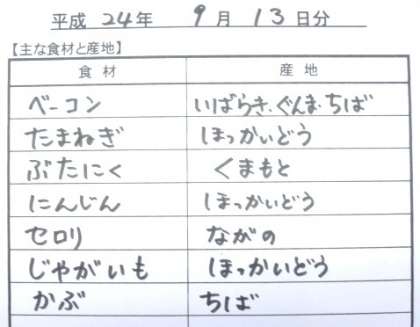 平成 24年 9月 13日分
【主な食材と産地】
食材 産地
ベーコン いばらき、ぐんま、ちば
たまねぎ ほっかいどう
ぶたにく くまもと
にんじん ほっかいどう
セロリ ながの
じゃがいも ほっかいどう
かぶ ちば